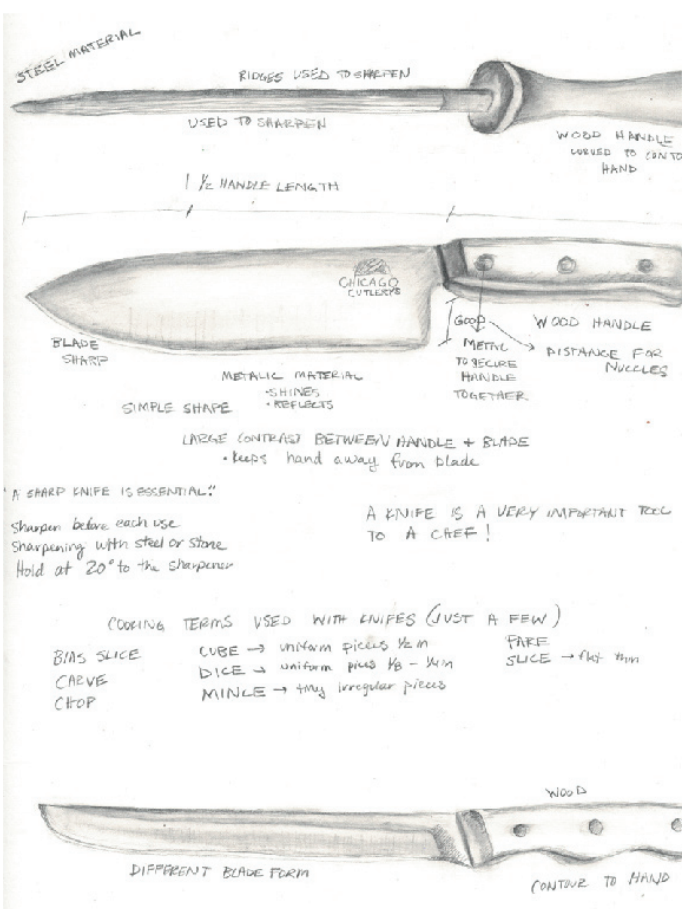 STEEL MATERIAL
RIDGES USED TO SHARPEN
USED TO SHARPEN
WOOD HANDLE
CURVED TO CONTO
HAND
1 1/2 HANDLE LENGTH
CHICAGO
CUTLERY
BLADE
SHARP
GOOD
METAL
TO SECURE
HANDLE
TOGETHER
WOOD HANDLE
DISTANCE FOR
NUCCLES
METALIC MATERIAL
• SHINES
• REFLECTS
SIMPLE SHAPE
LARGE CONTRAST BETWEEN HANDLE + BLADE
• keeps hand away from blade
"A SHARP KNIFE IS ESSENTIAL."
Sharpen before each use
Sharpening with steel or stone
Hold at 20° to the sharpener
A KNIFE IS A VERY IMPORTANT TOOL
TO A CHEF!
COOKING TERMS USED WITH KNIFES (JUST A FEW)
BIAS SLICE
CARVE
CHOP
CUBE → uniform pieces 1/2 in
DICE → uniform pices 1/8 - 1/4 in
MINCE → tiny irregular pieces
PARE
SLICE → flat thin
WOOD
DIFFERENT BLADE FORM
CONTOUR TO HAND